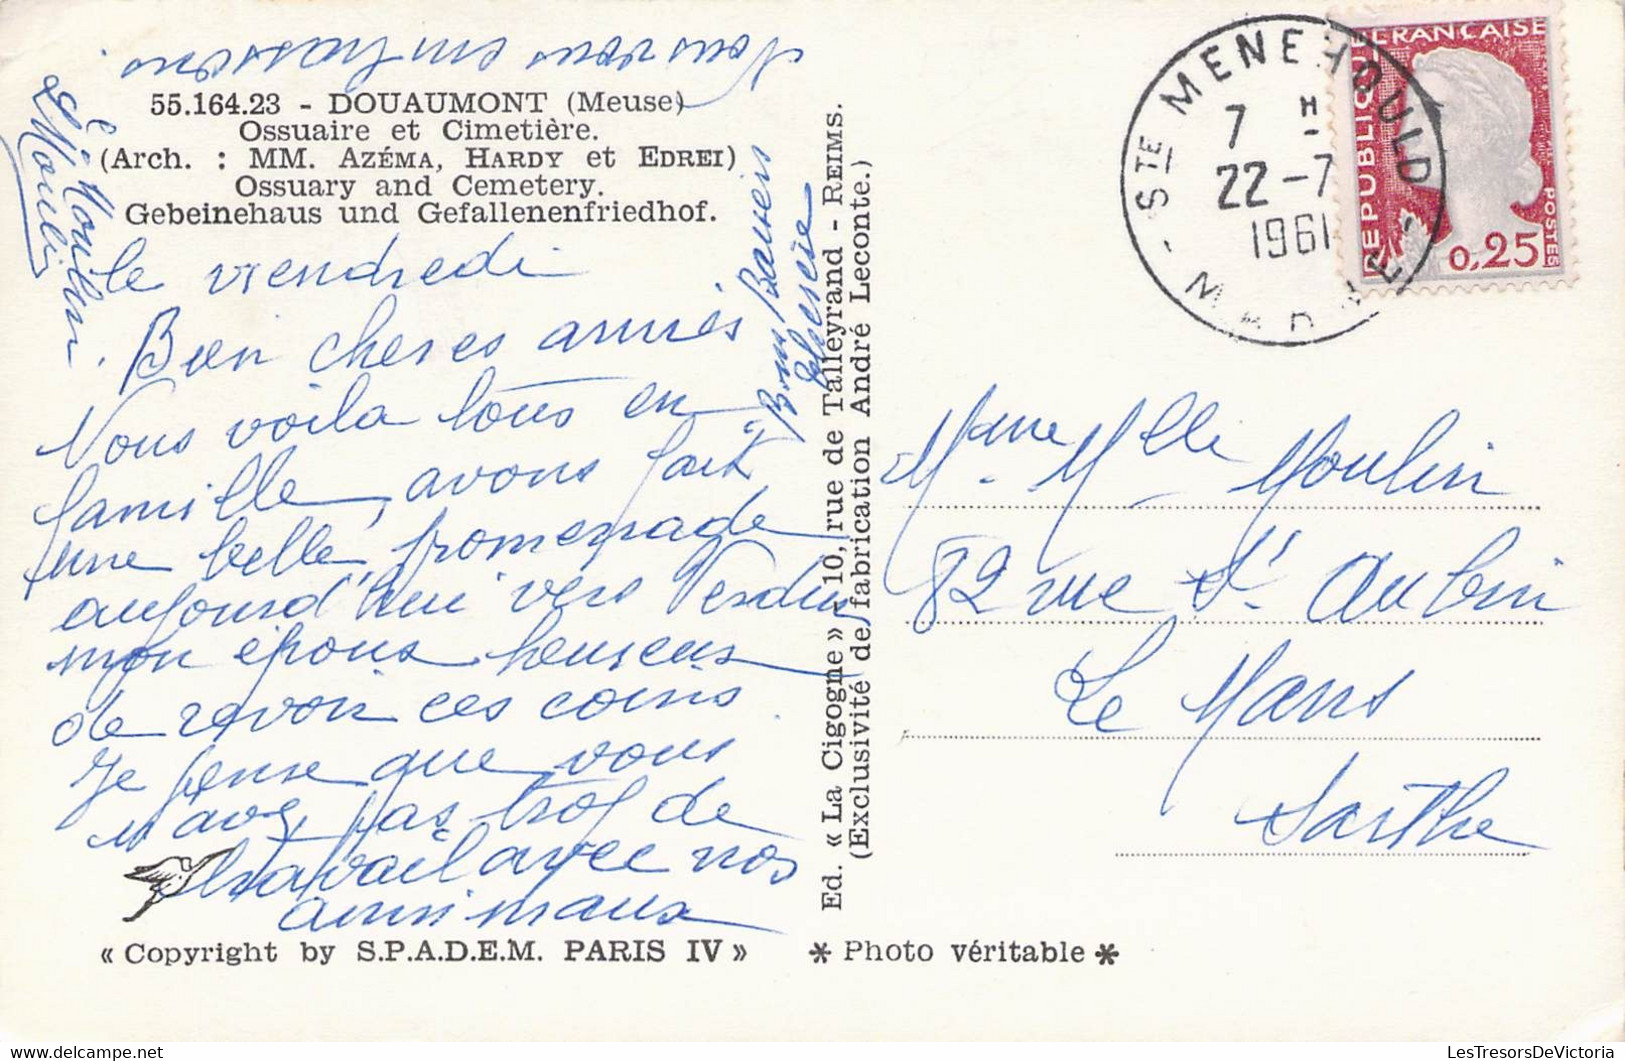 55.164.23 - DOUAUMONT (Meuse)
Ossuaire et Cimetière.
(Arch. : MM. AZÉMA, HARDY et EDREI)
Ossuary and Cemetery.
Gebeinehaus und Gefallenenfriedhof.
le vendredi
Bien cheres amies
Nous voila tous en
famille, avons fait
une belle promenade
aujourd'hui vers Verdun
mon épous heureux
de revoir ces coins
Je pense que vous
n'avez pas trop de
travail avec nos
animaux
Nous vous embrassons
Moulin
Bons Baisers
Ed. « La Cigogne » - 10, rue de Talleyrand - REIMS.
(Exclusivité de fabrication André Leconte.)
« Copyright by S.P.A.D.E.M. PARIS IV »
* Photo véritable *
STE MENEHOULD
7 H
22 -7
1961
MARNE
REPUBLIQUE FRANÇAISE
POSTES
0,25
Mme Mlle Moulin
82 rue St Aubin
Le Mans
Sarthe
LesTresorsDeVictoria